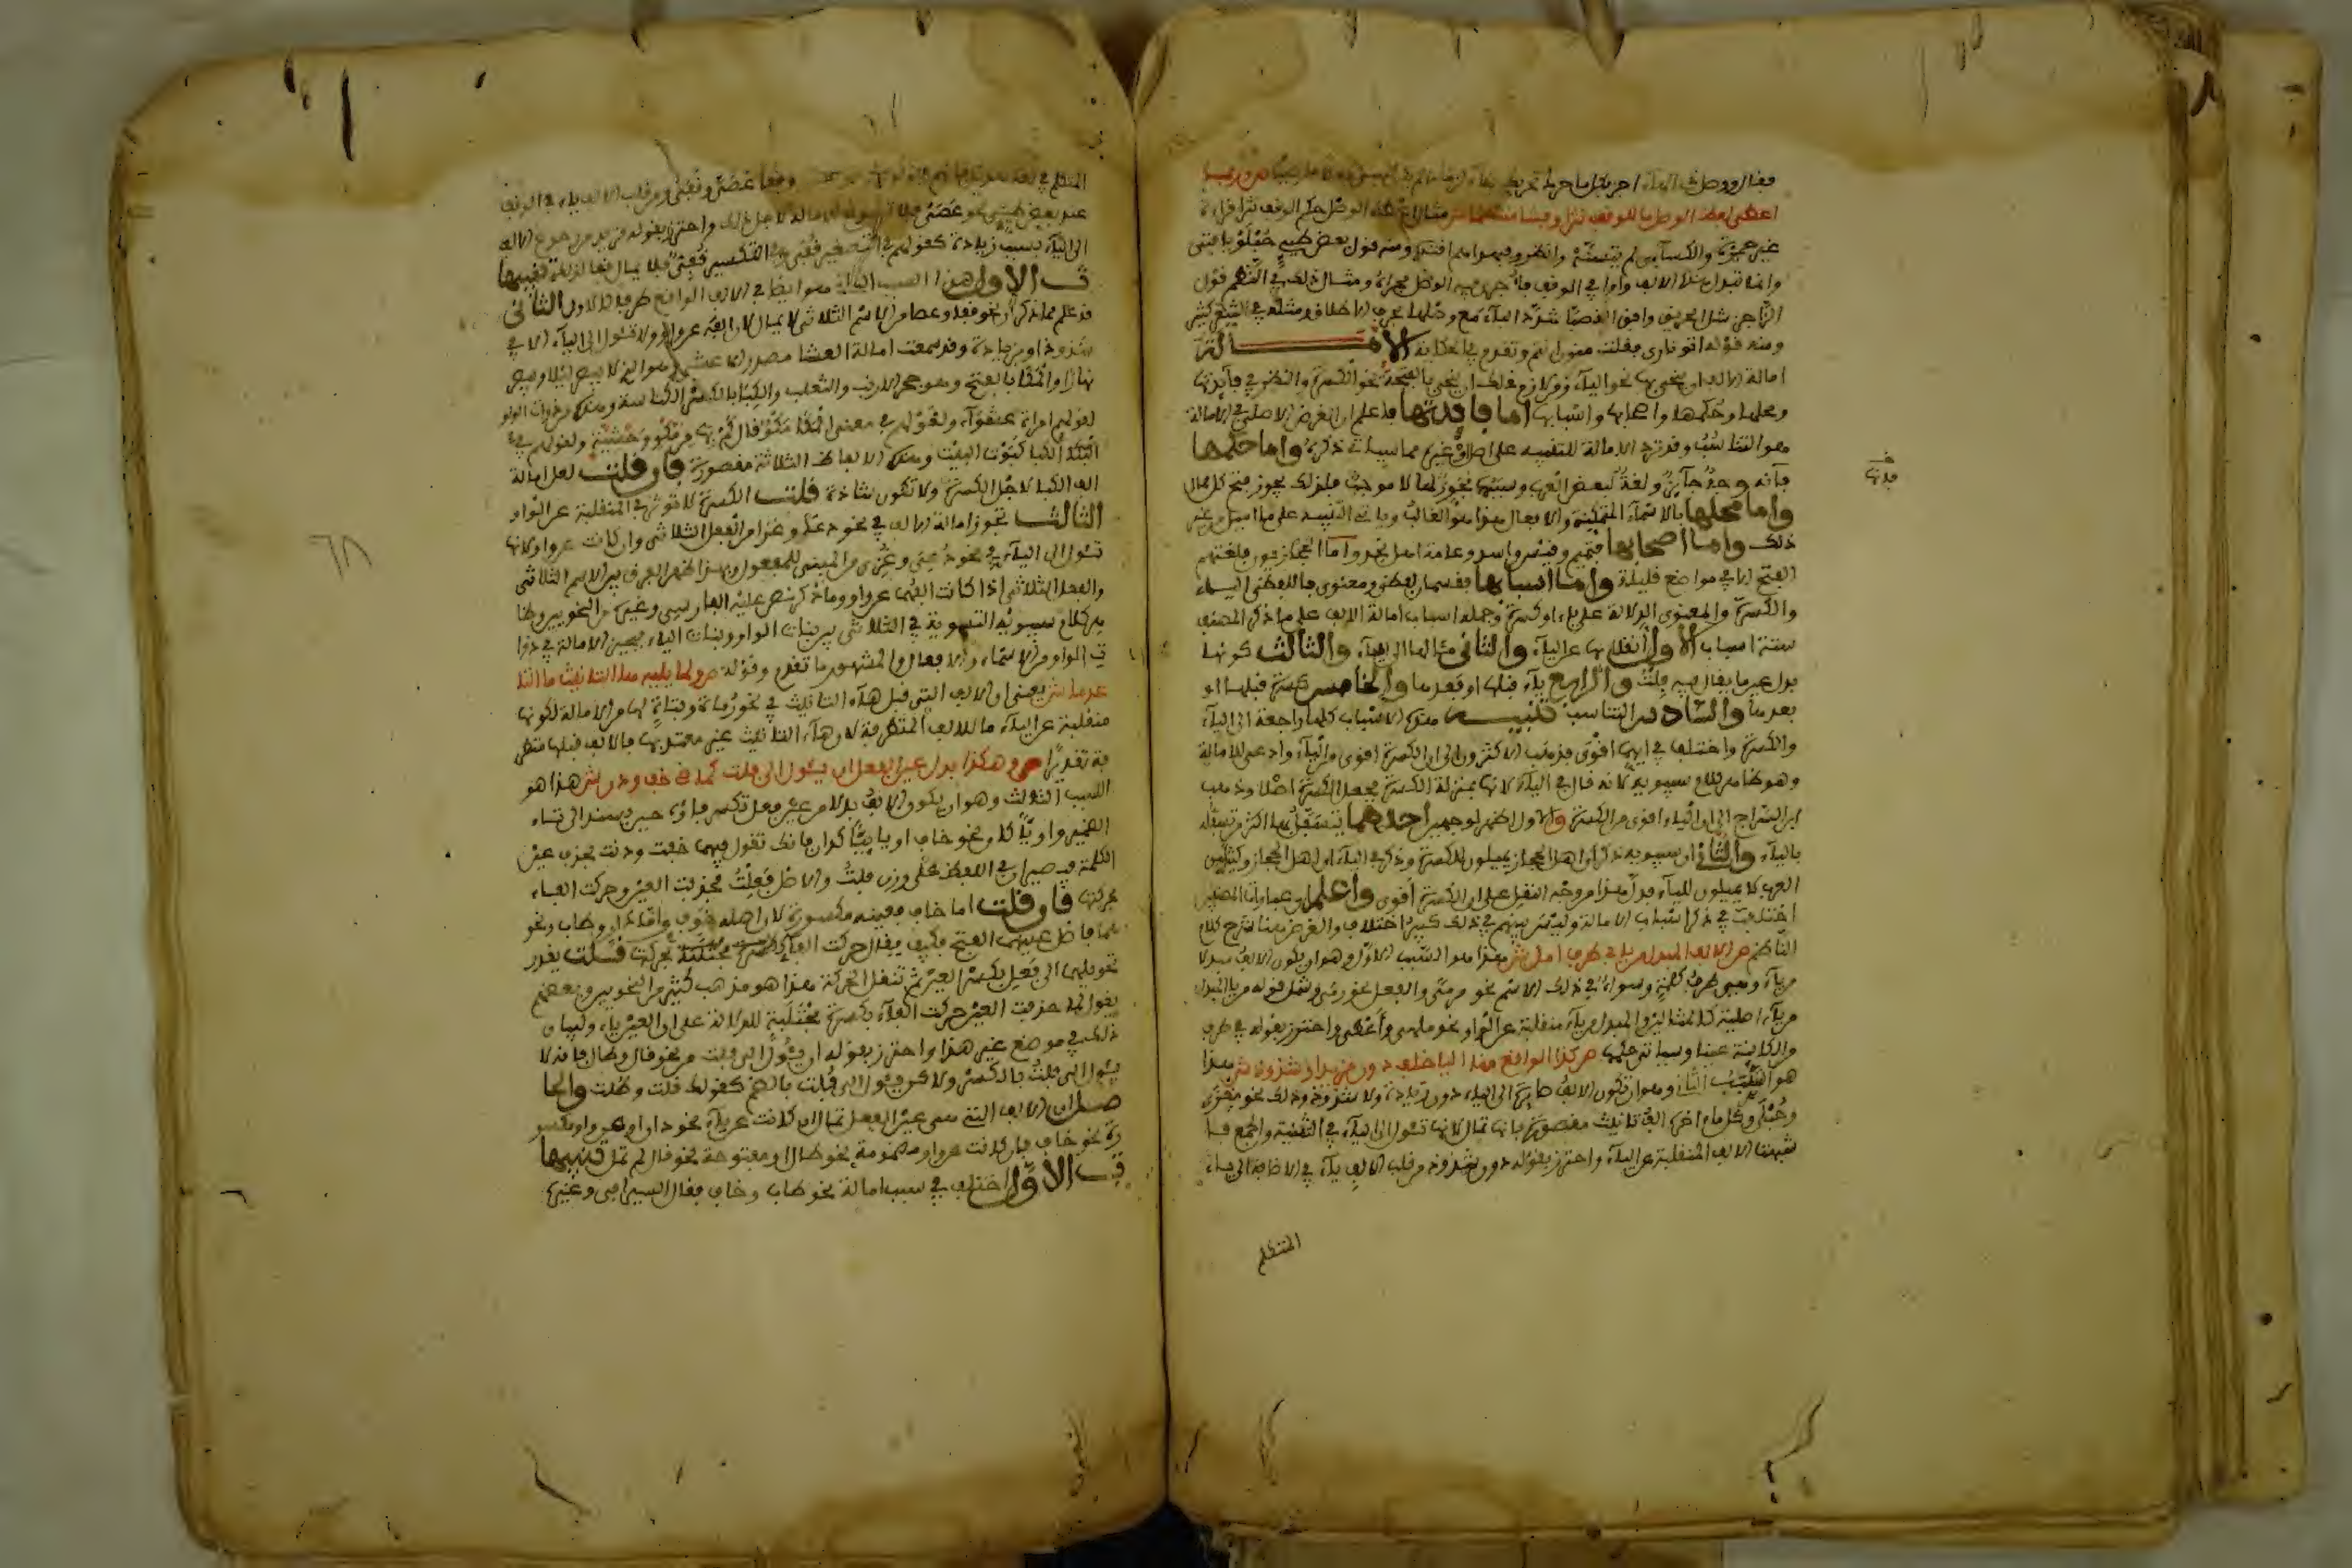 فقال ووصل
اعطى لفظ الوصل ما للوقف نثرا وفشا منتظما ش مثال اعطاء الوصل حكم الوقف نثرا قراءة
غير حمزة والكساءي لم يتسنه وانظر وفبهداهم اقتده ومنه قول بعض طيء حبلو يا فتى
وانما تبدل هذه الالف واوا في الوقف فاجرى فيه الوصل مجراه ومثال ذلك في النظم قول
الراجز مثل الحريق وافق القصبا شدد الباء مع وصلها بحرف الاطلاق ومثله في الشعر كثير
ومنه قوله اتوا ناري فقلت منون انتم وتقدم في الحكاية الامالة
امالة الالف ان ينحى بها نحو الياء ومن لازم ذلك ان ينحى بالفتحة نحو الكسرة والنظر في فايدتها
ومحلها وحكمها واصحابها واسبابها اما فايدتها فاعلم ان الغرض الاصلي في الامالة
هو التناسب وقد ترد الامالة للتنبيه على اصل او غيره مما سياتي ذكره واما حكمها
فانه وجه جائز ولغة لبعض العرب وسببها مجوز لها لا موجب فلذلك يجوز فتح كل ممال
واما محلها فالاسماء المتمكنة والافعال هذا هو الغالب وياتي التنبيه على ما اميل من غير
ذلك واما اصحابها فتميم وقيس واسد وعامة اهل نجد واما الحجازيون فلغتهم
الفتح الا في مواضع قليلة واما اسبابها فقسمان لفظي ومعنوي فاللفظي الياء
والكسرة والمعنوي الدلالة على ياء او كسرة وجملة اسباب امالة الالف على ما ذكر المصنف
ستة اسباب الاول انقلابها عن الياء والثاني مئالها الى الياء والثالث كونها
بدل عين ما يقال فيه فلت والرابع ياء قبلها او بعدها والخامس كسرة قبلها او
بعدها والسادس التناسب تنبيه هذه الاسباب كلها راجعة الى الياء
والكسرة واختلف في ايهما اقوى فذهب الاكثرون الى ان الكسرة اقوى من الياء وادعى للامالة
وهو ظاهر كلام سيبويه لانه قال في الياء لانها بمنزلة الكسرة فجعل الكسرة اصلا وذهب
ابن السراج الى ان الياء اقوى من الكسرة والاول اظهر لوجهين احدهما ان تسفل بها اكثر من تسفله
بالياء والثاني ان سيبويه ذكر ان اهل الحجاز يميلون للكسرة وذكر في الياء ان اهل الحجاز وكثير من
العرب لا يميلون للياء فدل هذا من وجه النقل على ان الكسرة اقوى واعلم ان عبارات المصنفين
اختلفت في ذكر اسباب الامالة وليس بينهم في ذلك كبير اختلاف والغرض هنا شرح كلام
الناظم ص الالف المبدل من يا في طرف امل ش هذا هو السبب الاول وهو ان يكون الالف مبدلا
من ياء وهي طرف كلمة وسواء في ذلك الاسم نحو مرمى والفعل نحو رمى وشمل قوله من يا المبدل
من ياء اصلية كالمثالين والمبدل من ياء منقلبة عن الواو نحو ملهى واعطى واحترز بقوله في طرف
من الكاينة عينا وسياتي حكمها ص كذا الواقع منه اليا خلف دون مزيد او شذوذ ش هذا
هو السبب الثاني وهو ان تكون الالف صايرة الى الياء دون زيادة ولا شذوذ وذلك نحو مغزى
وحبلى وكل ما اخره الف تانيث مقصورة فانها تمال لانها تئول الى الياء في التثنية والجمع فا
شبهت الالف المنقلبة عن الياء واحترز بقوله دون شذوذ من قلب الالف ياء في الاضافة الى ياء
فدتها
المتكلم
المتكلم في لغة هذيل
عند بعض طيء نحو عصي فلا
الى الياء بسبب زيادة كقولهم في التصغير قفي وفي التكسير قفي فلا يمال قفا لذلك تنبيها
ت الاول هذا السبب الثاني هو ايضا في الالف الواقع طرفا كالاول الثاني
قد علم مما ذكر ان نحو قفا وعصا من الاسم الثلاثي لا يمال لان الفه عن واو ولا تئول الى الياء الا في
شذوذ او بزيادة وقد سمعت امالة العشا مصدر الاعشى وهو الذي لا يبصر ليلا ويبصر
نهارا والمكا بالفتح وهو جحر الارنب والثعلب والكبا بالكسر الكناسة وهذه من ذوات الواو
لقولهم امراة عشواء ولقولهم في معنى المكا مكو
ولقولهم في
الكبا كبوت البيت وهذه الالفاظ الثلاثة مقصورة فان قلت لعل امالة
الف الكبا لاجل الكسرة ولا تكون شاذة قلت الكسرة لا تؤثر في المنقلبة عن الواو
الثالث تجوز امالة الالف في نحو دعا وغزا من الفعل الثلاثي وان كانت عن واو لانها
تئول الى الياء في نحو دعي وغزي من المبني للمفعول وبهذا ظهر الفرق بين الاسم الثلاثي
والفعل الثلاثي اذا كانت الفهما عن واو وما ذكر نص عليه الفارسي وغيره من النحويين وظا
هر كلام سيبويه التسوية في الثلاثي بين بنات الواو وبنات الياء
ص ولما يليه ها التانيث ما الها
عدما ش يعني ان للالف التي قبل هاء التانيث في نحو رماة وفتاة لها من الامالة لكونها
منقلبة عن الياء ما للالف المتطرفة لان هاء التانيث غير معتد بها فالالف قبلها متطر
فة تقديرا ص وهكذا بدل عين الفعل ان يئول الى فلت كماضي خف ودن ش هذا هو
السبب الثالث وهو ان يكون الالف بدلا من عين فعل تكسر فاؤه حين يسند الى تاء
الضمير واويا كان نحو خاف او يائيا كدان فانك تقول فيهما خفت ودنت بحذف عين
الكلمة فيصيران في اللفظ على وزن فلت والاصل فعلت فحذفت العين وحركت الفاء
بحركتها فان قلت اما خاف فعينه مكسورة لان اصله خوف واما دان وطاب ونحو
هما فاصل عينهما الفتح فكيف يقال حركت الفاء
بحركتها قلت يقدر
تحويلهما الى فعل بكسر العين ثم تنقل الحركة هذا هو مذهب كثير من النحويين وبعضهم
يقول لما حذفت العين حركت الفاء بكسرة مجتلبة للدلالة على ان العين ياء ولبيان
ذلك في موضع غير هذا واحترز بقوله ان يئول الى فلت من نحو قال وطال فانه لا
يئول الى فلت بالكسر ولكن يئول الى فلت بالضم كقولك قلت وطلت والحا
صل ان الالف التي هي عين الفعل تمال ان كانت عن ياء نحو دان او عن واو مكسو
رة نحو خاف فان كانت عن واو مضمومة نحو طال او مفتوحة نحو قال لم تمل تنبيها
ت الاول اختلف في سبب امالة نحو طاب وخاف فقال السيرافي وغيره